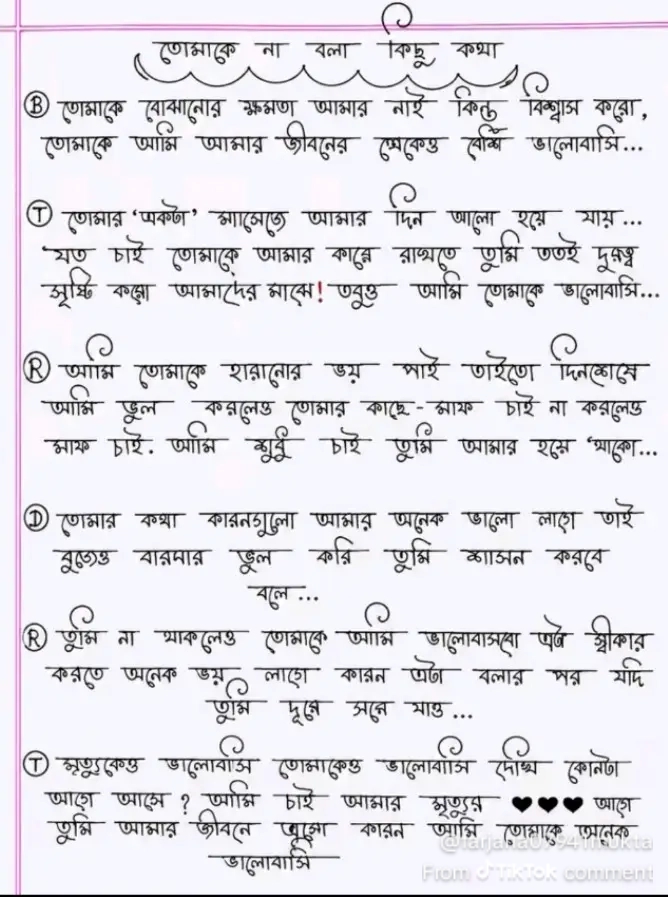 তোমাকে না বলা কিছু কথা
Ⓑ তোমাকে বোঝানোর ক্ষমতা আমার নাই কিন্তু বিশ্বাস করো,
তোমাকে আমি আমার জীবনের থেকেও বেশি ভালোবাসি...
Ⓣ তোমার ‘একটা’ ম্যাসেজে আমার দিন আলো হয়ে যায়...
‘যত চাই তোমাকে আমার কাছে রাখতে তুমি ততই দুরত্ব
সৃষ্টি করো আমাদের মাঝে! তবুও আমি তোমাকে ভালোবাসি...
Ⓡ আমি তোমাকে হারানোর ভয় পাই তাইতো দিনশেষে
আমি ভুল করলেও তোমার কাছে - মাফ চাই না করলেও
মাফ চাই. আমি শুধু চাই তুমি আমার হয়ে থাকো...
Ⓓ তোমার কথা কারনগুলো আমার অনেক ভালো লাগে তাই
বুজেও বারবার ভুল করি তুমি শাসন করবে
বলে...
Ⓡ তুমি না থাকলেও তোমাকে আমি ভালোবাসবো এটা স্বীকার
করতে অনেক ভয় লাগে কারন এটা বলার পর যদি
তুমি দূরে সরে যাও...
Ⓣ মৃত্যুকেও ভালোবাসি তোমাকেও ভালোবাসি দেখি কোনটা
আগে আসে ? আমি চাই আমার মৃত্যুর ♥♥♥ আগে
তুমি আমার জীবনে এসো কারন আমি তোমাকে অনেক
ভালোবাসি
From TikTok comment